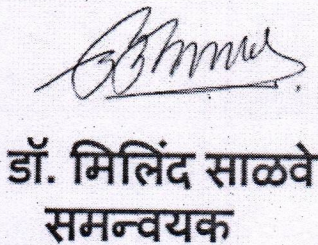 डॉ. मिलिंद साळवे
समन्वयक